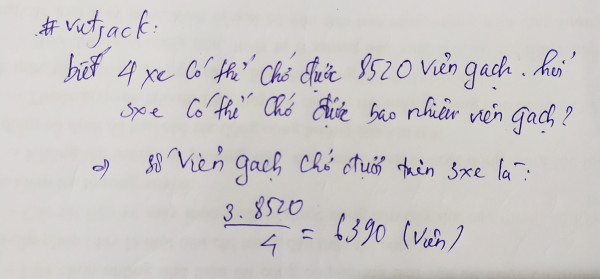 #vietjack:
biết 4 xe có thể chở được 8520 viên gạch. hỏi
3xe có thể chở được bao nhiêu viên gạch?
⇒ Số viên gạch chở được trên 3xe là:
3 . 8520 / 4 = 6390 (viên)